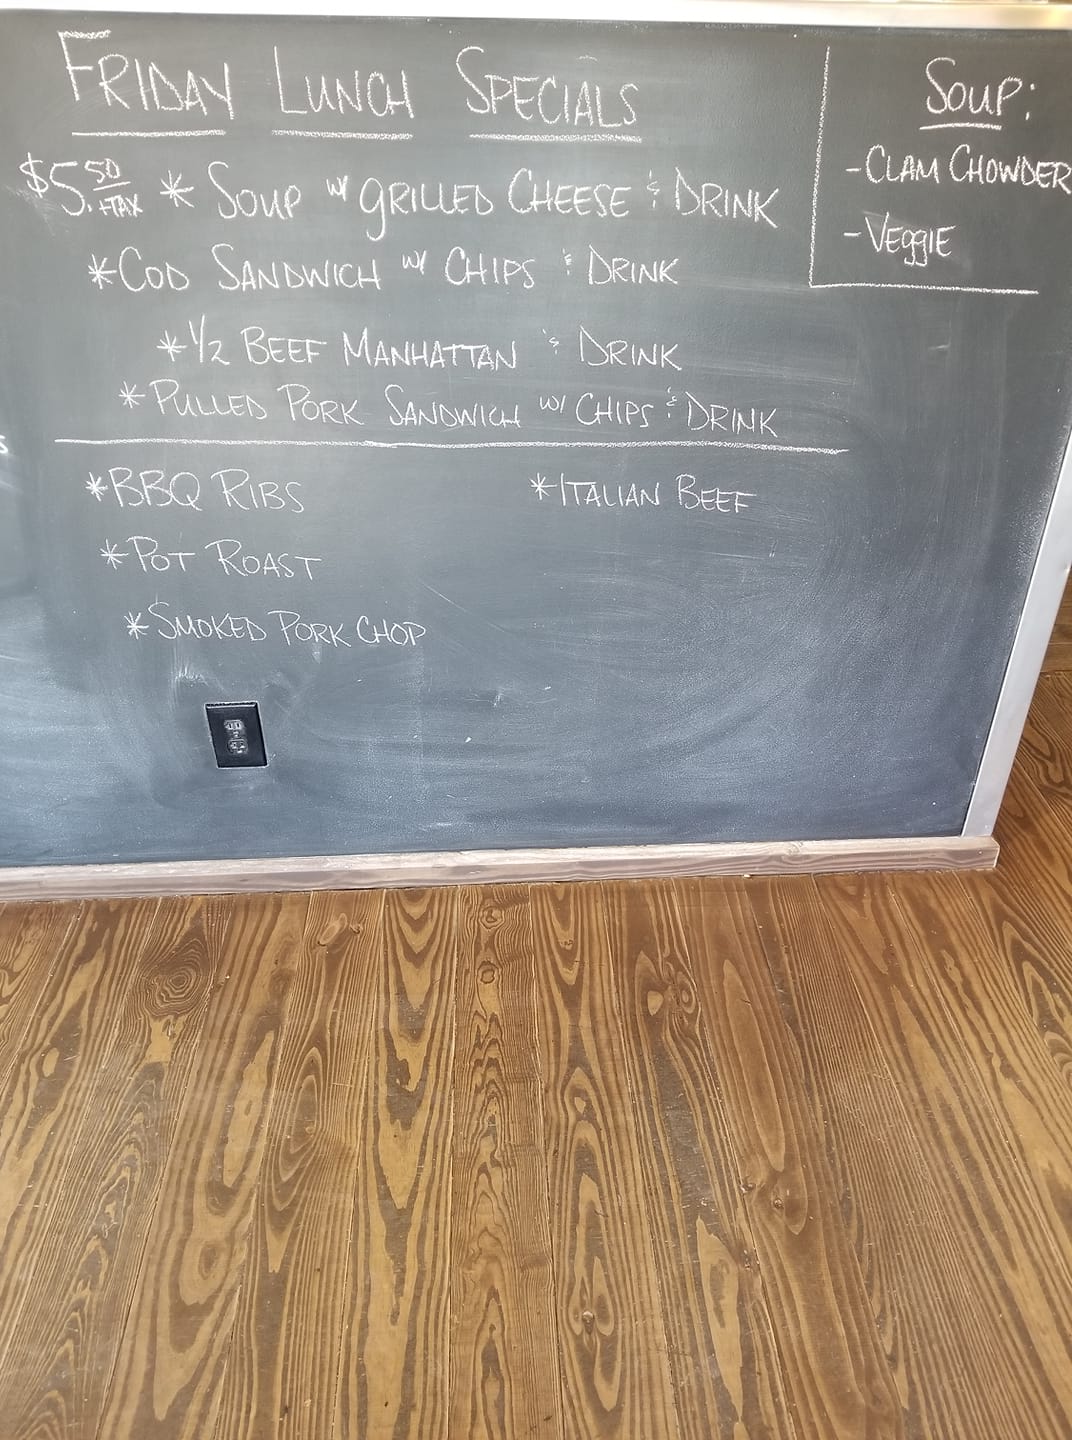 FRIDAY LUNCH SPECIALS
$5.50 +TAX * SOUP W/ GRILLED CHEESE & DRINK
* COD SANDWICH W/ CHIPS & DRINK
* 1/2 BEEF MANHATTAN & DRINK
* PULLED PORK SANDWICH W/ CHIPS & DRINK
* BBQ RIBS
* POT ROAST
* SMOKED PORK CHOP
* ITALIAN BEEF
SOUP:
- CLAM CHOWDER
- VEGGIE